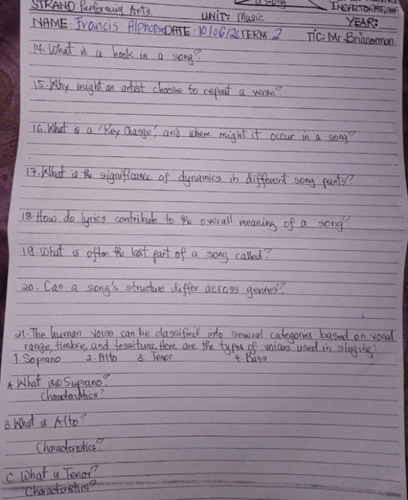 a song
STRAND: Performing Arts.
UNIT: Music
YEAR:
NAME: Francis Alphonse DATE: 10/06/26 TERM: 2 TIC: Mr.
14. What is a hook in a song?
15. Why might an artist choose to repeat a verse?
16. What is a 'Key Change', and where might it occur in a song?
17. What is the significance of dynamics in different song parts?
18. How do lyrics contribute to the overall meaning of a song?
19. What is often the last part of a song called?
20. Can a song's structure differ across genres?
21. The human voice can be classified into several categories based on vocal
range, timbre, and tessitura. Here are the types of voices used in singing:
1. Soprano 2. Alto 3. Tenor 4. Bass
A. What is Suprano?
Characteristics?
B. What is Alto?
Characteristics?
C. What is Tenor?
Characteristics?